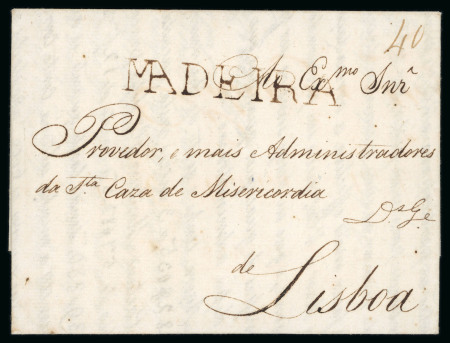 40
MADEIRA
Ao Exmo Snr
Provedor, e mais Administradores
da Sta Caza de Misericordia
Ds Ge
de
Lisboa